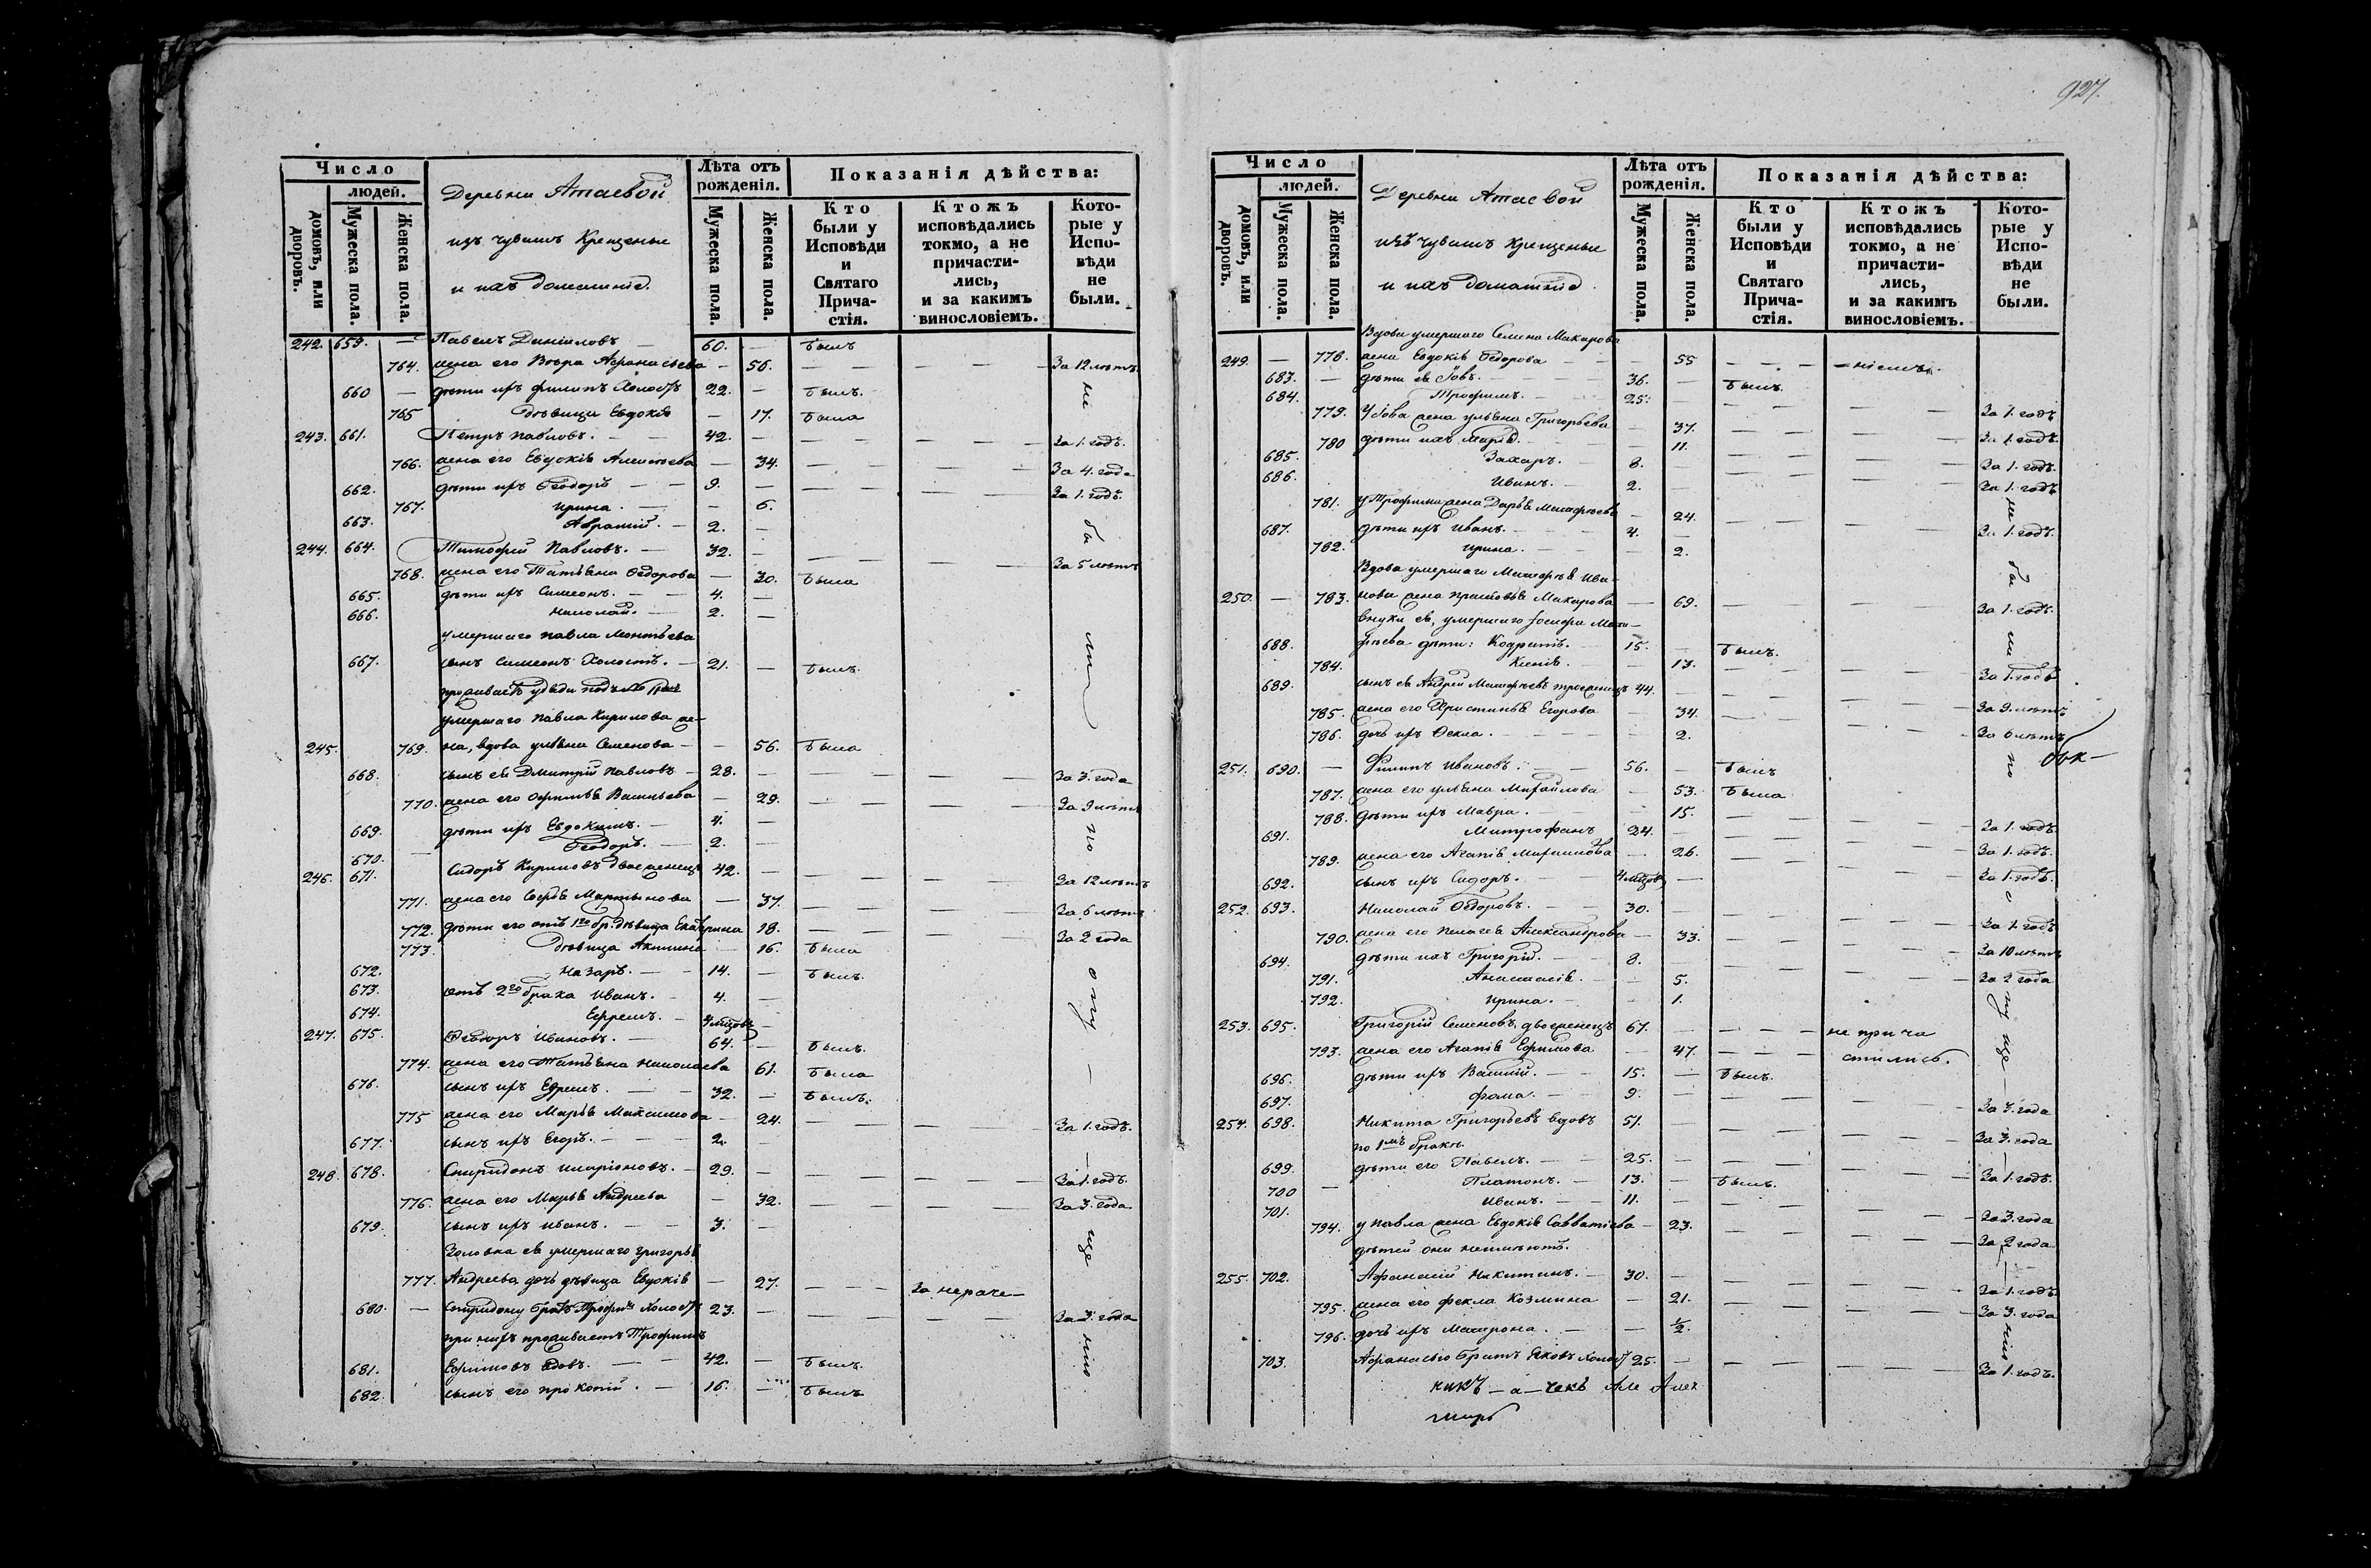 927.
Число
людей.
домовъ, или дворовъ.
Мужеска пола.
Женска пола.
Деревни Атаевой
изъ чувашъ Крещеные
и ихъ домашніе.
Лѣта отъ рожденія.
Мужеска пола.
Женска пола.
Показанія дѣйства:
Кто были у Исповѣди и Святаго Причастія.
Ктожъ исповѣдались токмо, а не причастились, и за какимъ винословіемъ.
Которые у Исповѣди не были.
242. 659. — Павелъ Даниловъ — 60. — былъ
764. жена его Вѣра Афанасьева — 56. — — — — За 12 лѣтъ
660 — дѣти ихъ Филипъ холостъ 22. — былъ.
765 дѣвица Евдокія — 17. была
243. 661. Петръ Павловъ. — 42. — — — — За 1. годъ.
766. жена его Евдокія Алексѣева — 34. — — — За 4. года
662. дѣти ихъ Ѳеодоръ — 9. — — — За 1. годъ.
767. Ирина. — — 6.
663. Аврамій. — 2. —
244. 664. Тимофей Павловъ. — 32. — — — За 5 лѣтъ
768. жена его Татьяна Ѳедорова — 30. была
665. дѣти ихъ Симеонъ. — 4. —
666. Николай. — 2. —
умершаго Павла Леонтьева
667. сынъ Симеонъ холостъ. — 21. — былъ.
проживаетъ у дяди
умершаго Павла Кирилова же-
245. 769. на, вдова Ульяна Семенова — — 56. была
668. сынъ ея Дмитрій Павловъ — 28. — — — — За 3. года
770. жена его Офимья Васильева — 29. — — — За 9 лѣтъ
669. дѣти ихъ Евдокимъ. — 4. —
670. Ѳеодоръ. — 2. —
246. 671. Сидоръ Кириловъ двоеженецъ 42. — — — За 12 лѣтъ
771. жена его Софья Мартынова — 37. — — — За 6 лѣтъ
772. дѣти его отъ 1го бр. дѣвица Екатерина 18. — — — За 2 года
773. дѣвица Акилина — 16. была
672. Назаръ. — 14. — былъ.
673. отъ 2го брака Иванъ. — 4. —
674. Ефремъ. — 4 мѣцовъ —
247. 675. Ѳеодоръ Ивановъ. — 64. — былъ.
774. жена его Татьяна Николаева 61. была
676. сынъ ихъ Ефремъ. — 32. — былъ.
775 жена его Марья Максимова — 24. — — — За 1. годъ.
677. сынъ ихъ Егоръ. — 2. —
248. 678. Спиридонъ Иларіоновъ. — 29. — — — За 1. годъ.
776. жена его Марья Андреева — 32. — — — За 3. года
679. сынъ ихъ Иванъ. — 3. —
Золовка ея умершаго Григорья
777. Андреева дочь дѣвица Евдокія — 27. — — За нераче-
680. — Спиридону братъ Трофимъ холостъ 23. — — — За 3. года
при нихъ проживаетъ Трофимъ
681. Ефимовъ вдовъ. — 42. — былъ.
682. сынъ его Прокопій. — 16. — былъ
Число
людей.
домовъ, или дворовъ.
Мужеска пола.
Женска пола.
Деревни Атаевой
изъ чувашъ крещеные
и ихъ домашніе
Лѣта отъ рожденія.
Мужеска пола.
Женска пола.
Показанія дѣйства:
Кто были у Исповѣди и Святаго Причастія.
Ктожъ исповѣдались токмо, а не причастились, и за какимъ винословіемъ.
Которые у Исповѣди не были.
Вдова умершаго Семена Макарова
249. — 778. жена Евдокія Ѳедорова — 55 — — — ніемъ.
683. — дѣти ея Іовъ. — 36. — былъ.
684. Трофимъ. — 25. — — — За 1. годъ
779. У Іова жена Ульяна Григорьева — 37. — — — За 1. годъ
780 дѣти ихъ Марья. — 11. — — — За 1. годъ.
685. Захаръ. — 8. — — — За 1. годъ
686. Иванъ. — 2. —
781. у Трофима жена Дарья Матфеева — 24. — — — За 1. годъ.
687. дѣти ихъ Иванъ. — 4. —
782. Ирина. — — 2.
Вдова умершаго Матфея Ива-
250. — 783. нова жена Прасковья Макарова — 69. — — — За 1. годъ.
внуки ея, умершаго Іосифа Мат-
688. фѣева дѣти: Кодратъ. — 15. — былъ.
784. Ксенія. — — 13. — — — За 1. годъ
689. сынъ ея Андрей Матфѣевъ троеженецъ 44. — — — За 9. лѣтъ
785. жена его Христинья Егорова — 34. — — — За 6 лѣтъ
786. дочь ихъ Ѳекла. — — 2.
251. 690. — Филипъ Ивановъ. — 56. — былъ
787. жена его Ульяна Михайлова — 53. была
788. дѣти ихъ Мавра. — — 15. — — — За 1. годъ
691. Митрофанъ 24. — — — За 1. годъ.
789. жена его Агапія — 26. — — — За 1. годъ.
692. сынъ ихъ Сидоръ. — 4 мѣцовъ —
252. 693. Николай Ѳедоровъ. — 30. — — — За 1. годъ
790. жена его Пелагея Александрова — 33. — — — За 10 лѣтъ
694. дѣти ихъ Григорій. — 8. — — — За 2 года
791. Анастасія. — — 5.
792. Ирина. — — 1.
253. 695. Григорій Семеновъ, двоеженецъ 67. — — — не прича
793. жена его Агапія Ефимова — 47. — — — стились.
696. дѣти ихъ Василій. — 15. — былъ.
697. Фома. — 9. — — — За 3. года
254. 698. Никита Григорьевъ вдовъ 51. — — — За 3. года
по 1мъ бракѣ.
699. дѣти его Павелъ. — 25. — — — За 1. годъ.
700 Платонъ. — 13. — былъ.
701. Иванъ. — 11. — — — За 3. года
794. у Павла жена Евдокія Савватіева — 23. — — — За 2 года
дѣтей они неимѣютъ.
255. 702. Афанасій Никитинъ. — 30. — — — За 1. годъ
795. жена его Фекла Козмина — 21. — — — За 3. года
796. дочь ихъ Матрона. — — ½.
703. Афанасью братъ Яковъ холост 25. — — — За 1. годъ.